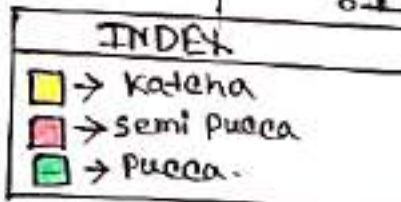 INDEX
→ Katcha
→ semi pucca
→ pucca.